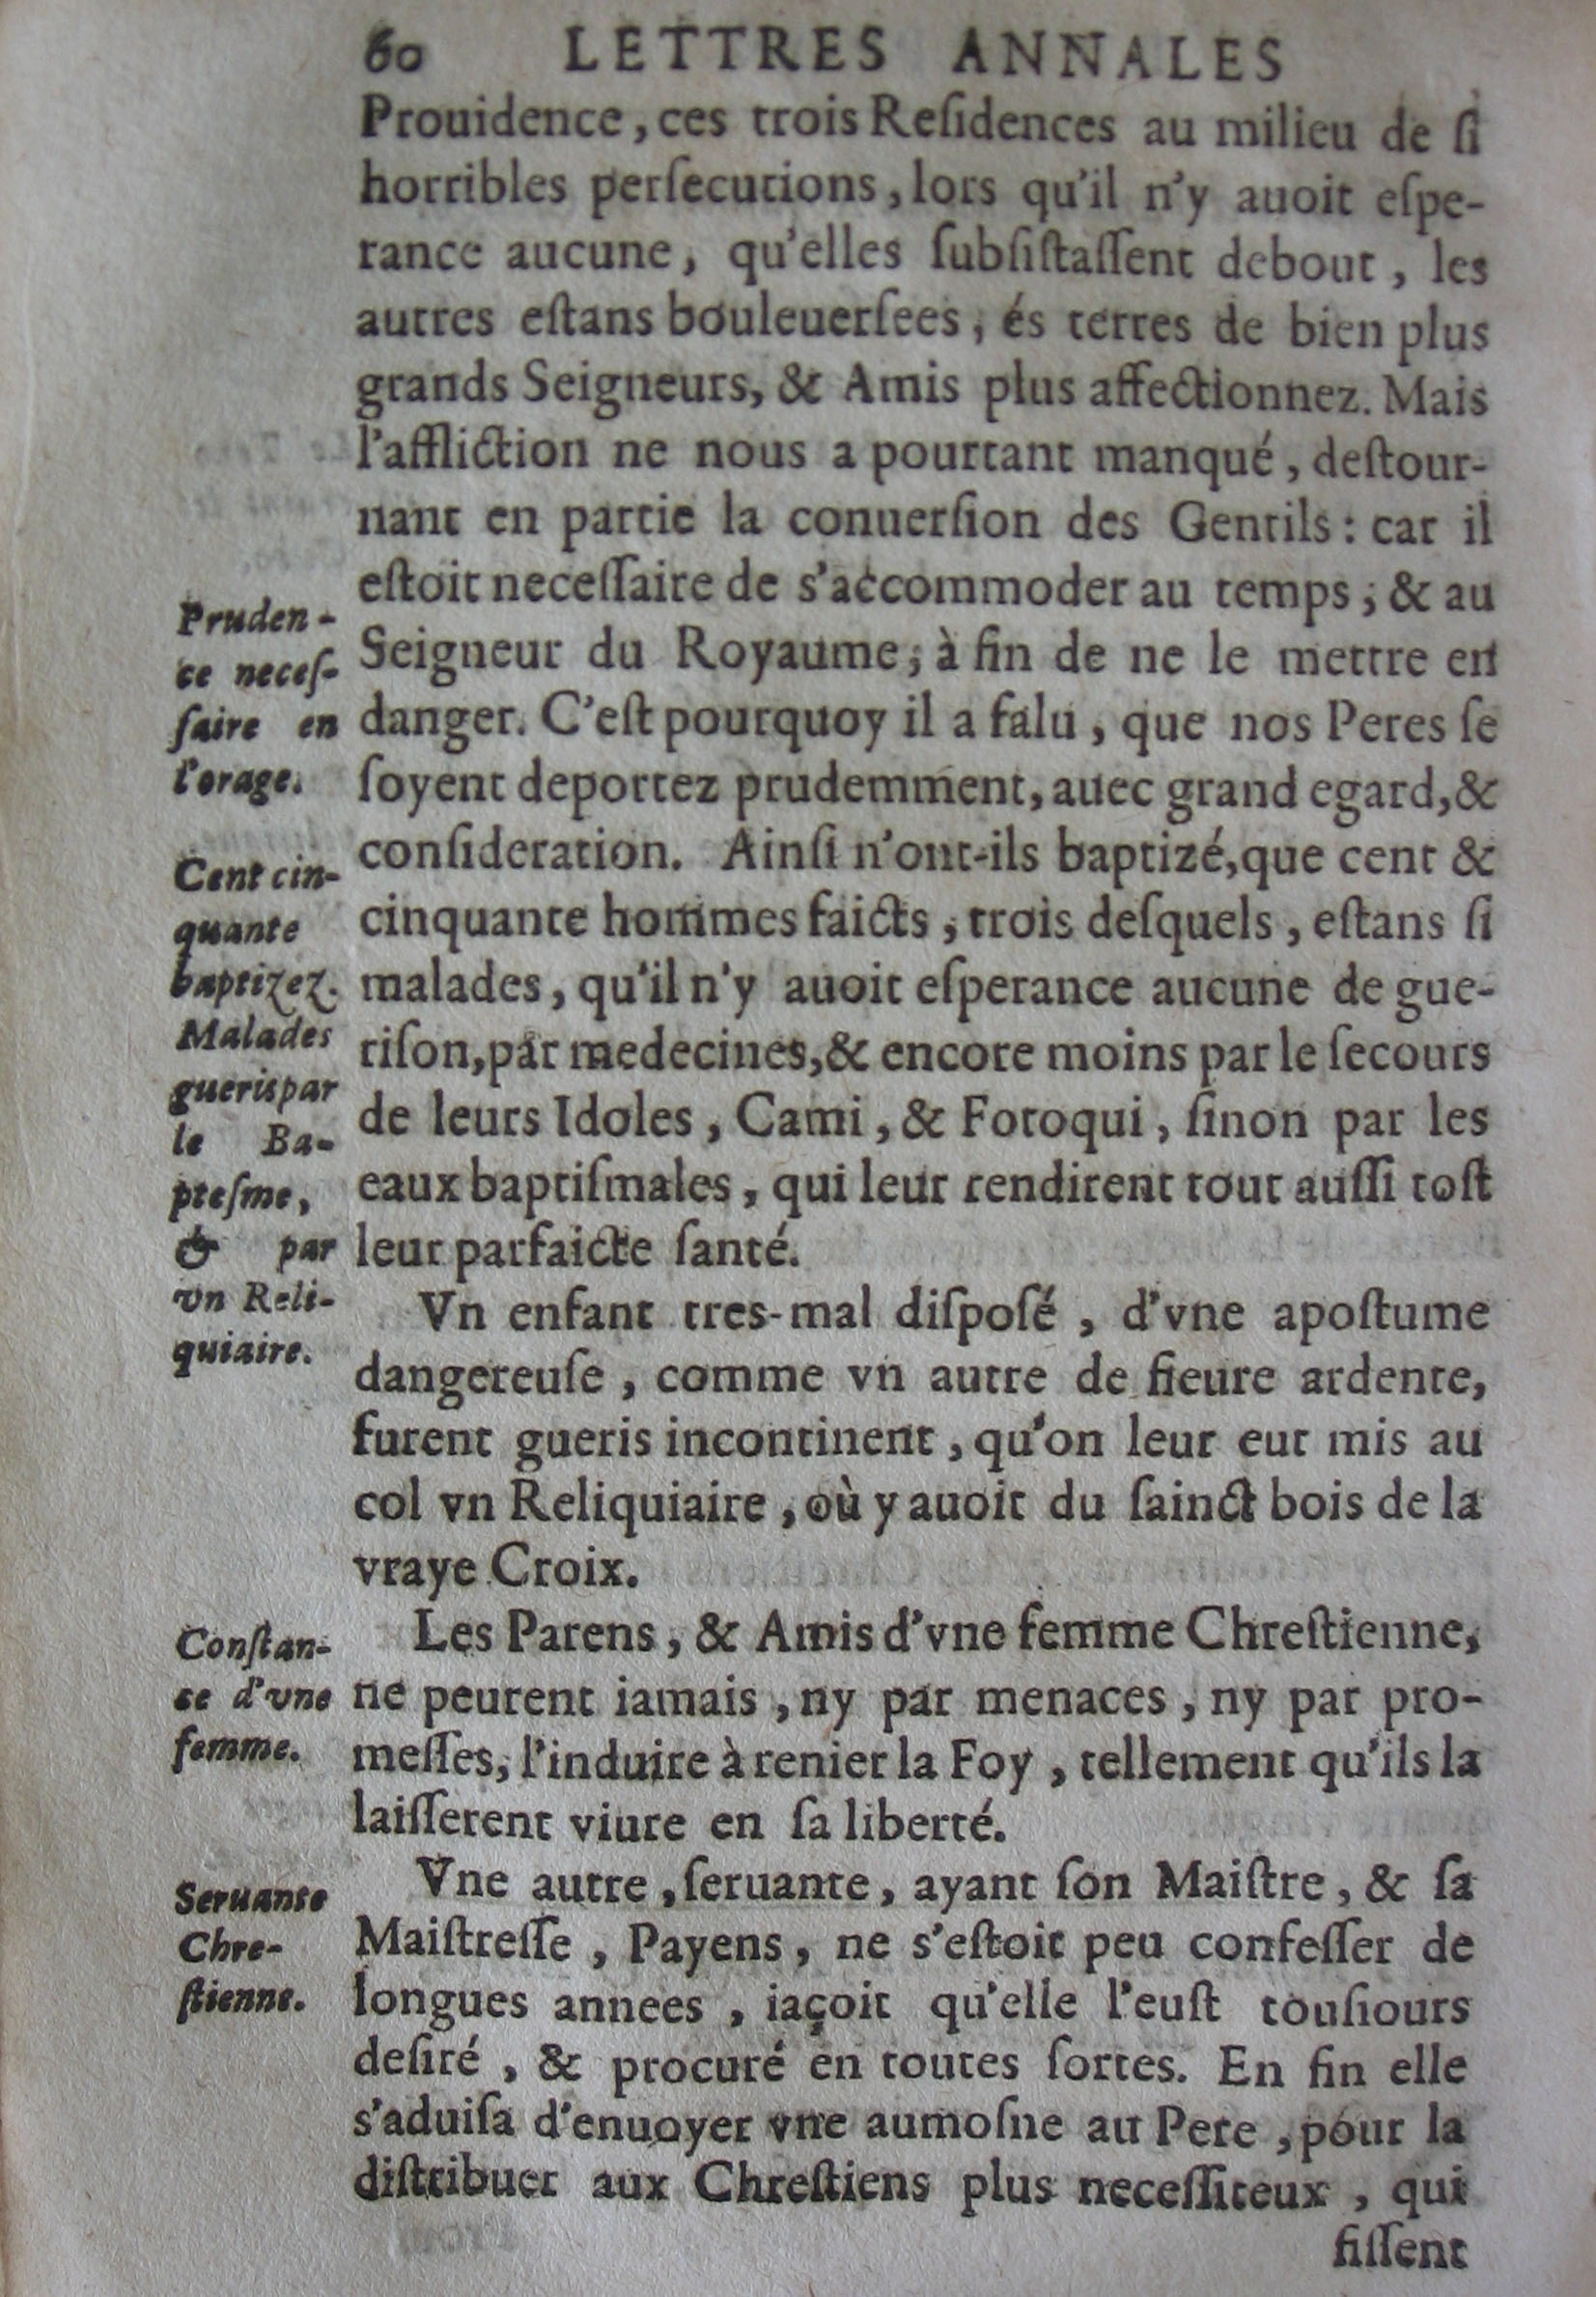 60 LETTRES ANNALES
Prouidence, ces trois Reſidences au milieu de ſi
horribles perſecutions, lors qu'il n'y auoit eſpe-
rance aucune, qu'elles ſubſiſtaſſent debout, les
autres eſtans bouleuerſees, és terres de bien plus
grands Seigneurs, & Amis plus affectionnez. Mais
l'affliction ne nous a pourtant manqué, deſtour-
nant en partie la conuerſion des Gentils: car il
eſtoit neceſſaire de s'accommoder au temps, & au
Seigneur du Royaume, à fin de ne le mettre en
danger. C'eſt pourquoy il a falu, que nos Peres ſe
ſoyent deportez prudemment, auec grand egard, &
conſideration. Ainſi n'ont-ils baptizé, que cent &
cinquante hommes faicts, trois deſquels, eſtans ſi
malades, qu'il n'y auoit eſperance aucune de gue-
riſon, par medecines, & encore moins par le ſecours
de leurs Idoles, Cami, & Fotoqui, ſinon par les
eaux baptiſmales, qui leur rendirent tout auſſi toſt
leur parfaicte ſanté.
Vn enfant tres-mal diſpoſé, d'vne apoſtume
dangereuſe, comme vn autre de fieure ardente,
furent gueris incontinent, qu'on leur eut mis au
col vn Reliquiaire, où y auoit du ſainct bois de la
vraye Croix.
Les Parens, & Amis d'vne femme Chreſtienne,
ne peurent iamais, ny par menaces, ny par pro-
meſſes, l'induire à renier la Foy, tellement qu'ils la
laiſſerent viure en ſa liberté.
Vne autre, ſeruante, ayant ſon Maiſtre, & ſa
Maiſtreſſe, Payens, ne s'eſtoit peu confeſſer de
longues annees, iaçoit qu'elle l'euſt touſiours
deſiré, & procuré en toutes ſortes. En fin elle
s'aduiſa d'enuoyer vne aumoſne au Pere, pour la
diſtribuer aux Chreſtiens plus neceſſiteux, qui
fiſſent
Pruden-
ce neceſ-
ſaire en
l'orage.
Cent cin-
quante
baptizez.
Malades
gueris par
le Ba-
pteſme,
& par
vn Reli-
quiaire.
Conſtan-
ce d'vne
femme.
Seruante
Chre-
ſtienne.